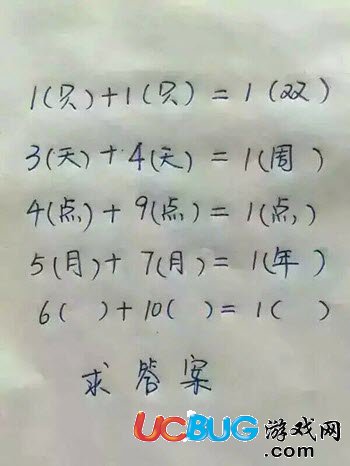 1(只)+1(只)=1(双)
3(天)+4(天)=1(周)
4(点)+9(点)=1(点)
5(月)+7(月)=1(年)
6( )+10( )=1( )
求答案
UCBUG游戏网
.com